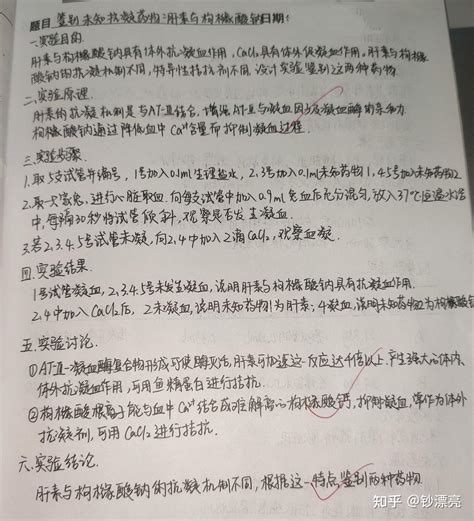 题目:鉴别未知抗凝药物:肝素与枸橼酸钠 日期:
一.实验目的
肝素与枸橼酸钠具有体外抗凝血作用,CaCl₂具有体外促凝血作用,肝素与枸橼
酸钠的抗凝机制不同,特异性拮抗剂不同,设计实验鉴别这两种药物.
二.实验原理.
肝素的抗凝机制是与AT-Ⅲ结合,增强AT-Ⅲ与凝血因子及凝血酶的亲和力
枸橼酸钠通过降低血中Ca²⁺含量而抑制凝血过程.
三.实验步骤.
1.取5支试管并编号,1号加入0.1ml生理盐水,2.3号加入0.1ml未知药物1,4.5号加入未知药物2.
2.取一只家兔,进行心脏取血.向每支试管中加入0.9ml兔血后充分混匀,放入37℃恒温水浴
中,每隔30秒将试管倾斜,观察是否发生凝血.
3.若2.3.4.5号试管未凝,向2.4中加入2滴CaCl₂,观察血凝.
四.实验结果.
1号试管凝血,2.3.4.5号未发生凝血,说明肝素与枸橼酸钠具有抗凝血作用.
2.4中加入CaCl₂后,2未凝血,说明未知药物1为肝素;4凝血,说明未知药物2为枸橼酸钠
五.实验讨论.
①AT-Ⅲ-凝血酶复合物形成可使酶灭活,肝素可加速这一反应达千倍以上.产生强大的体内、
体外抗凝血作用,可用鱼精蛋白进行拮抗.
②枸橼酸根离子能与血中Ca²⁺结合成难解离的枸橼酸钙,抑制凝血,常作为体外
抗凝剂,可用CaCl₂进行拮抗.
六.实验结论.
肝素与枸橼酸钠的抗凝机制不同,根据这一特点鉴别两种药物.
知乎 @钞漂亮